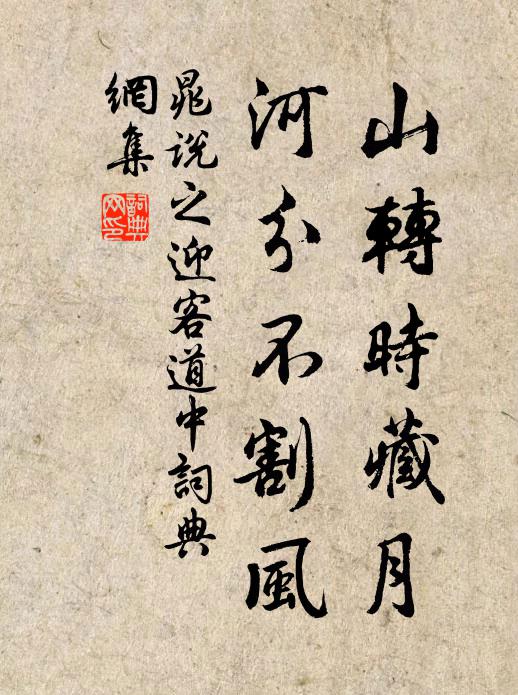 山轉時藏月
河分不割風
晁說之迎客道中詞典
網集
詞典
网印